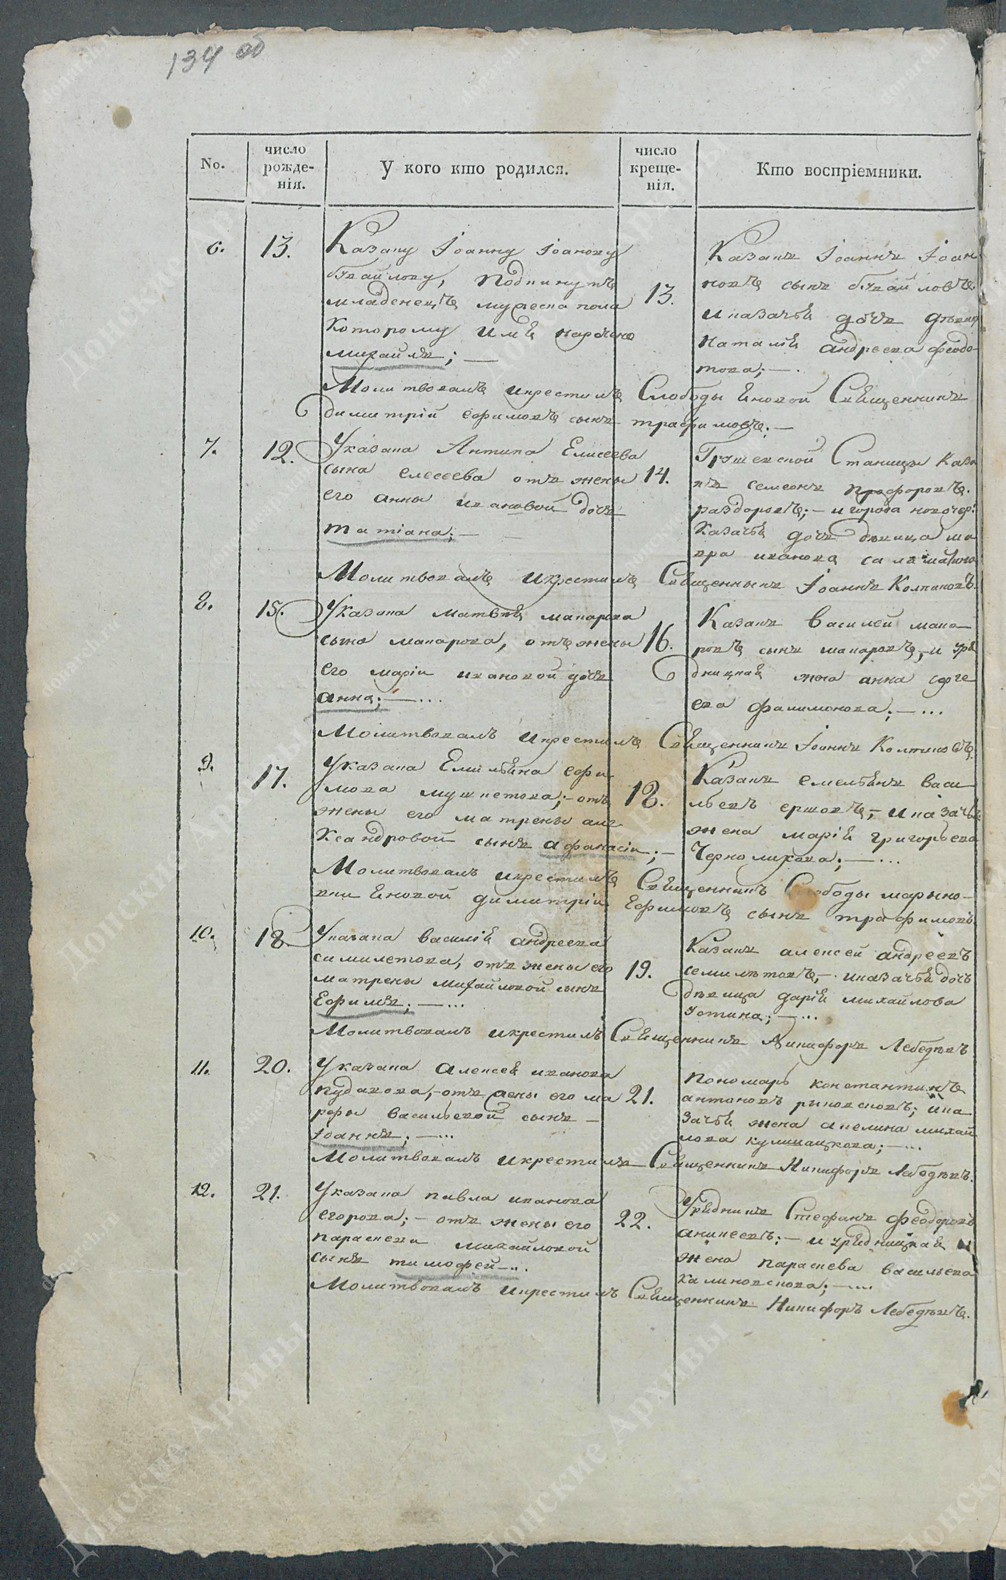 134 об
No.
число рожденія.
У кого кто родился.
число крещенія.
Кто воспріемники.
6.
13.
Казаку Іоанну Іоанову
подкинутъ
младенецъ мужеска пола
которому имя наречено
михаилъ;
13.
Казакъ Іоаннъ Іоан
новъ сынъ
и казачья дочь девка
Наталія андреева федо
това;
Молитвовалъ и крестилъ Слободы Еновой Священникъ
димитрій ефимовъ сынъ трофимовъ;
7.
12.
Указака Антипа Елисеева
сына елесеева отъ жены
его анны ивановой дочь
татіана;
14.
Грушевской Станицы Каза
къ семеонъ
раздоровъ; и города новочер:
казачья дочь девица ма
вра иванова
Молитвовалъ и крестилъ Священникъ Іоаннъ Колпаковъ
8.
15.
Указака матвея макарова
сына макарова, отъ жены
его маріи ивановой дочь
анна;
16.
Казакъ василей мака
ровъ сынъ макаровъ, и уря
дницкая жена анна серге
ева фалимонова;
Молитвовалъ и крестилъ Священникъ Іоаннъ Колпаковъ
9.
17.
Указака Емельяна ефи
мова мушкетова; отъ
жены его матрены але
ксандровой сынъ афанасіи;
18.
Казакъ емельянъ васи
льевъ ершовъ, и казачья
жена марія григорьева
Чернолихова;
Молитвовалъ и крестилъ Священникъ Слободы марьино-
вки Еновой димитрій Ефимовъ сынъ трофимовъ
10.
18.
Указака василія андреева
симилетова, отъ жены его
матрены михайловой сынъ
Ефимъ;
19.
Казакъ алексей андреевъ
семилетовъ, и казачья дочь
девица дарія михайлова
устина;
Молитвовалъ и крестилъ Священникъ Никифоръ Лебедевъ
11.
20.
Указака алексея иванова
кудакова, отъ жены его ма
рфы васильевой сынъ
Іоаннъ;
21.
Пономарь константинъ
антоновъ рыковсковъ; и ка
зачья жена акелина михай
лова кулишацкова;
Молитвовалъ и крестилъ Священникъ Никифоръ Лебедевъ.
12.
21.
Указака павла иванова
егорова; отъ жены его
параскеви михайловой
сынъ тимофей
22.
Урядникъ Стефанъ Феодоровъ
аникеевъ; и урядницкая
жена параскева васильева
калиновскова;
Молитвовалъ и крестилъ Священникъ Никифоръ Лебедевъ.
Донские Архивы
donarch.ru